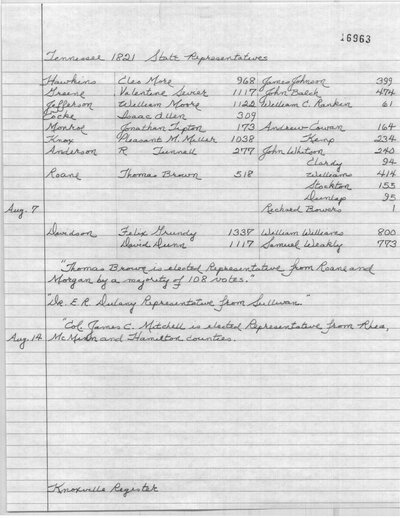 16963
Tennessee 1821 State Representatives
Hawkins Cleo More 968 James Johnson 399
Greene Valentine Sevier 1117 John Balch 474
Jefferson William Moore 1122 William C. Rankin 61
Cocke Isaac Allen 309
Monroe Jonathan Tipton 173 Andrew Cowan 164
Knox Pleasant M. Miller 1038 Kemp 234
Anderson R Tunnell 277 John Whitson 240
Clardy 94
Roane Thomas Brown 518 Williams 414
Stockton 155
Dunlap 95
Aug. 7 Richard Bowers 1
Davidson Felix Grundy 1337 William Williams 800
David Dunn 1117 Samuel Weakly 773
"Thomas Brown is elected Representative from Roane and
Morgan by a majority of 108 votes."
Dr. E. R. Dulany Representative from Sullivan."
"Col. James C. Mitchell is elected Representative from Rhea,
Aug. 14 McMinn and Hamilton counties.
Knoxville Register